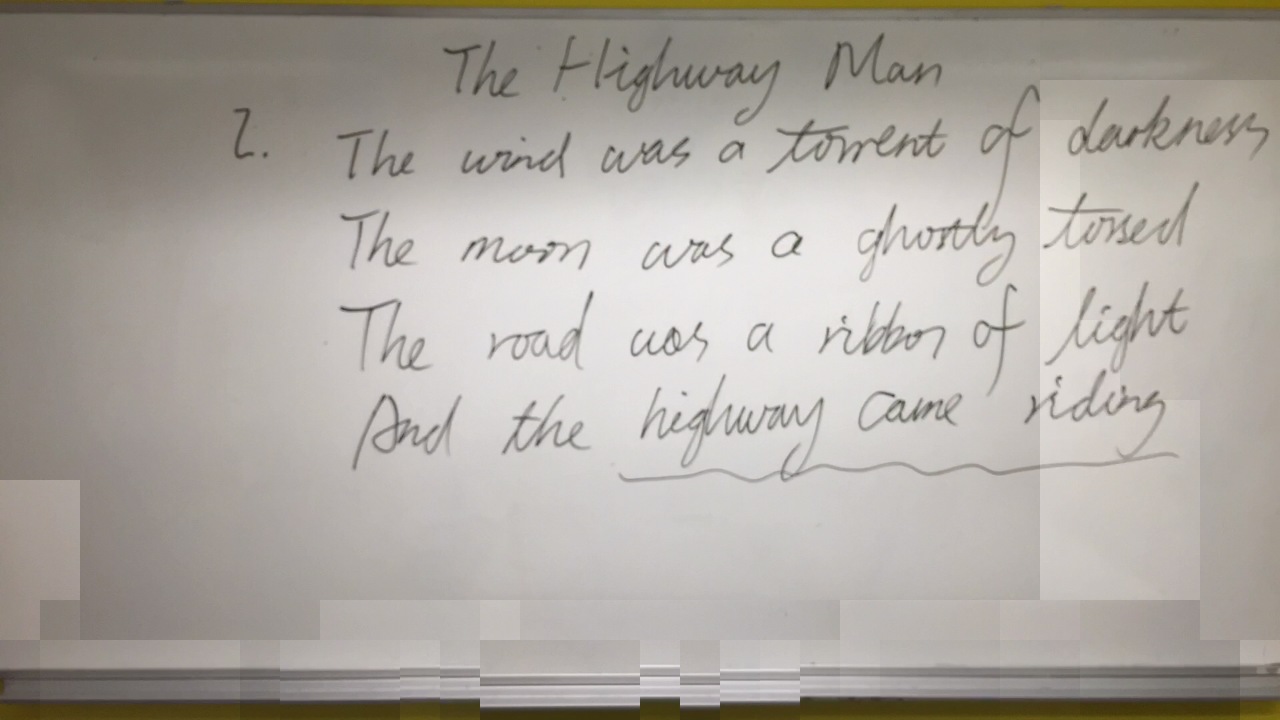 The Highway Man
2. The wind was a torrent of darkness
The moon was a ghostly tossed
The road was a ribbon of light
And the highway came riding